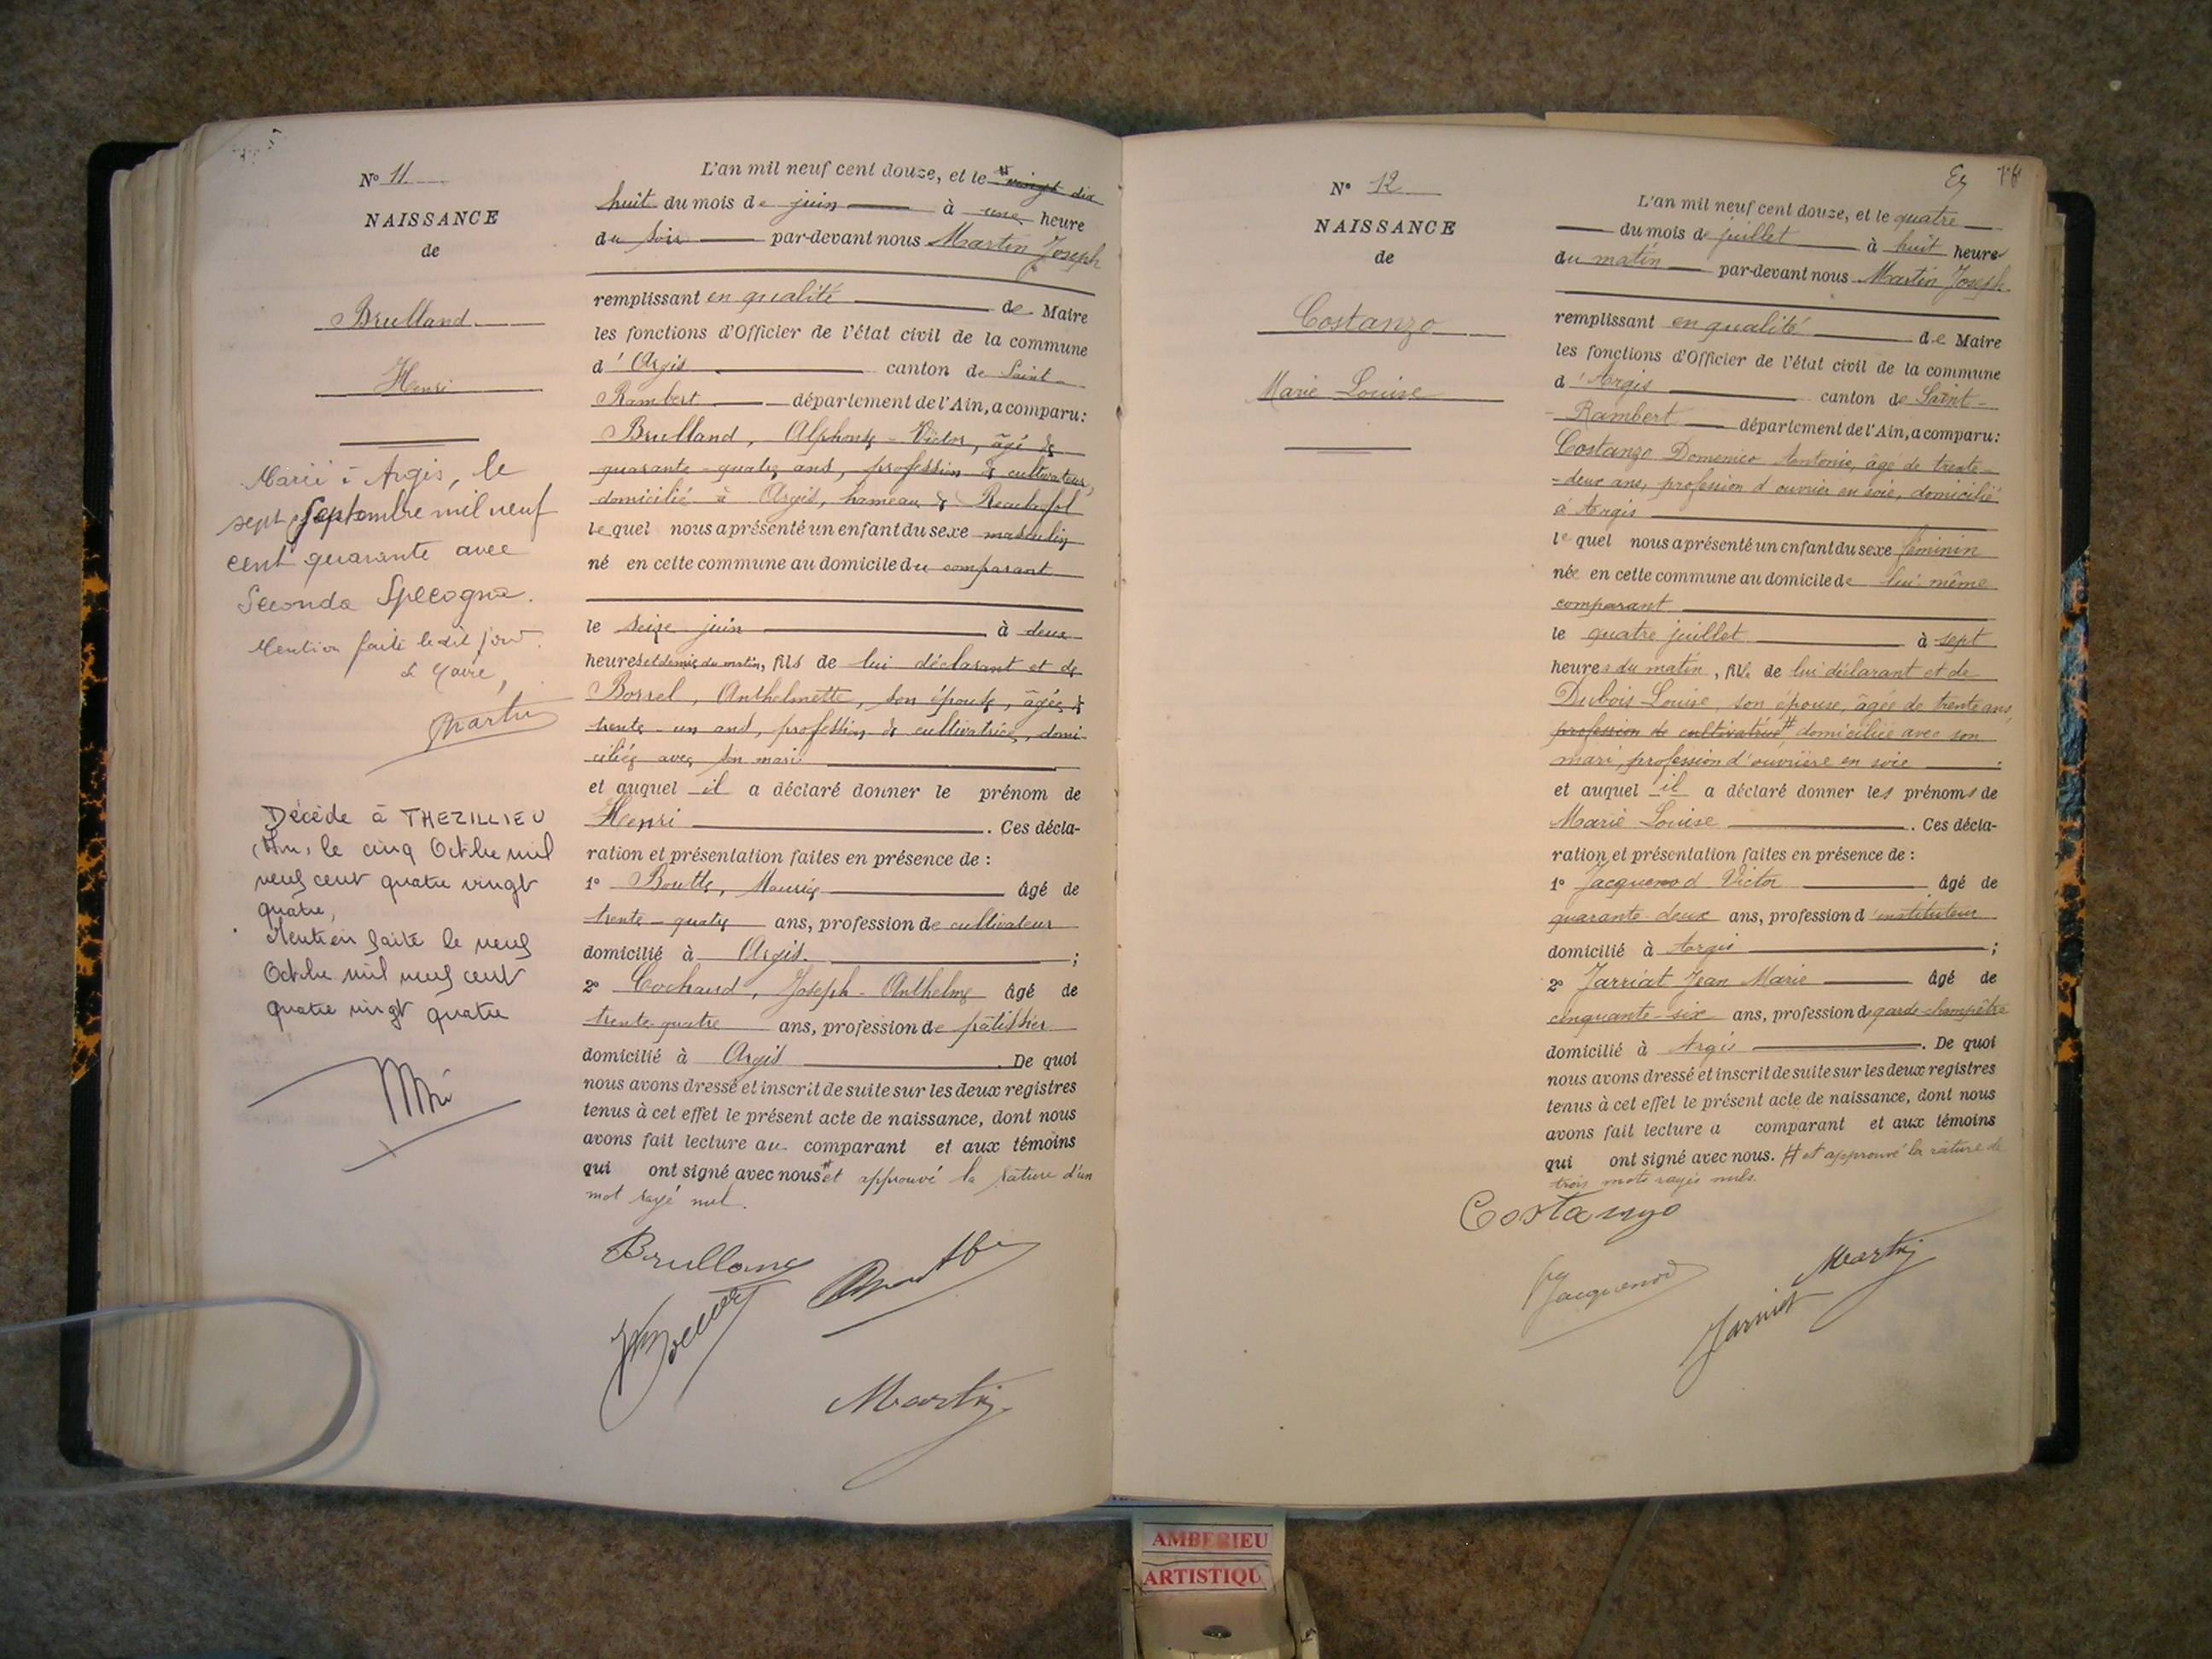 N° 11
NAISSANCE
de
Brulland
Henri
Marié à Argis, le
sept Septembre mil neuf
cent quarante avec
Seconda Specogna.
Mention faite ledit jour.
Le Maire,
Martin
Décédé à THEZILLIEU
(Ain) le cinq Octobre mil
neuf cent quatre vingt
quatre,
Mention faite le neuf
Octobre mil neuf cent
quatre vingt quatre
L'an mil neuf cent douze, et le # vingt dix
huit du mois de juin à une heure
du soir par-devant nous Martin Joseph
remplissant en qualité de Maire
les fonctions d'Officier de l'état civil de la commune
d'Argis canton de Saint-
Rambert département de l'Ain, a comparu:
Brulland, Alphonse-Victor, âgé de
quarante-quatre ans, profession de cultivateur,
domicilié à Argis, hameau de
lequel nous a présenté un enfant du sexe masculin
né en cette commune au domicile du comparant
le seize juin à deux
heures et demie du matin, fils de lui déclarant et de
Borrel, Anthelmette, son épouse, âgée de
trente-un ans, profession de cultivatrice, domi-
ciliée avec son mari
et auquel il a déclaré donner le prénom de
Henri. Ces décla-
ration et présentation faites en présence de :
1° Boutte, Maurice âgé de
trente-quatre ans, profession de cultivateur
domicilié à Argis. ;
2° Cochaud, Joseph-Anthelme âgé de
trente-quatre ans, profession de pâtissier
domicilié à Argis. De quoi
nous avons dressé et inscrit de suite sur les deux registres
tenus à cet effet le présent acte de naissance, dont nous
avons fait lecture au comparant et aux témoins
qui ont signé avec nous # et approuvé la rature d'un
mot rayé nul.
Brulland
Martin
Ez
N° 12
NAISSANCE
de
Costanzo
Marie Louise
L'an mil neuf cent douze, et le quatre
du mois de juillet à huit heures
du matin par-devant nous Martin Joseph
remplissant en qualité de Maire
les fonctions d'Officier de l'état civil de la commune
d'Argis canton de Saint-
Rambert département de l'Ain, a comparu:
Costanzo Domenico Antonio, âgé de trente-
-deux ans, profession d'ouvrier en soie, domicilié
à Argis
lequel nous a présenté un enfant du sexe féminin
née en cette commune au domicile de lui-même
comparant
le quatre juillet à sept
heures du matin, fille de lui déclarant et de
Dubois Louise, son épouse, âgée de trente ans,
profession de cultivatrice # domiciliée avec son
mari, profession d'ouvrière en soie
et auquel il a déclaré donner les prénoms de
Marie Louise. Ces décla-
ration et présentation faites en présence de :
1° Jacquenod Victor âgé de
quarante-deux ans, profession d'instituteur
domicilié à Argis ;
2° Jarriat Jean Marie âgé de
cinquante-six ans, profession de garde-champêtre
domicilié à Argis. De quoi
nous avons dressé et inscrit de suite sur les deux registres
tenus à cet effet le présent acte de naissance, dont nous
avons fait lecture a comparant et aux témoins
qui ont signé avec nous. # et approuvé la rature de
trois mots rayés nuls.
Costanzo
Jacquenod
Martin
Jarriat
AMBERIEU
ARTISTIQU